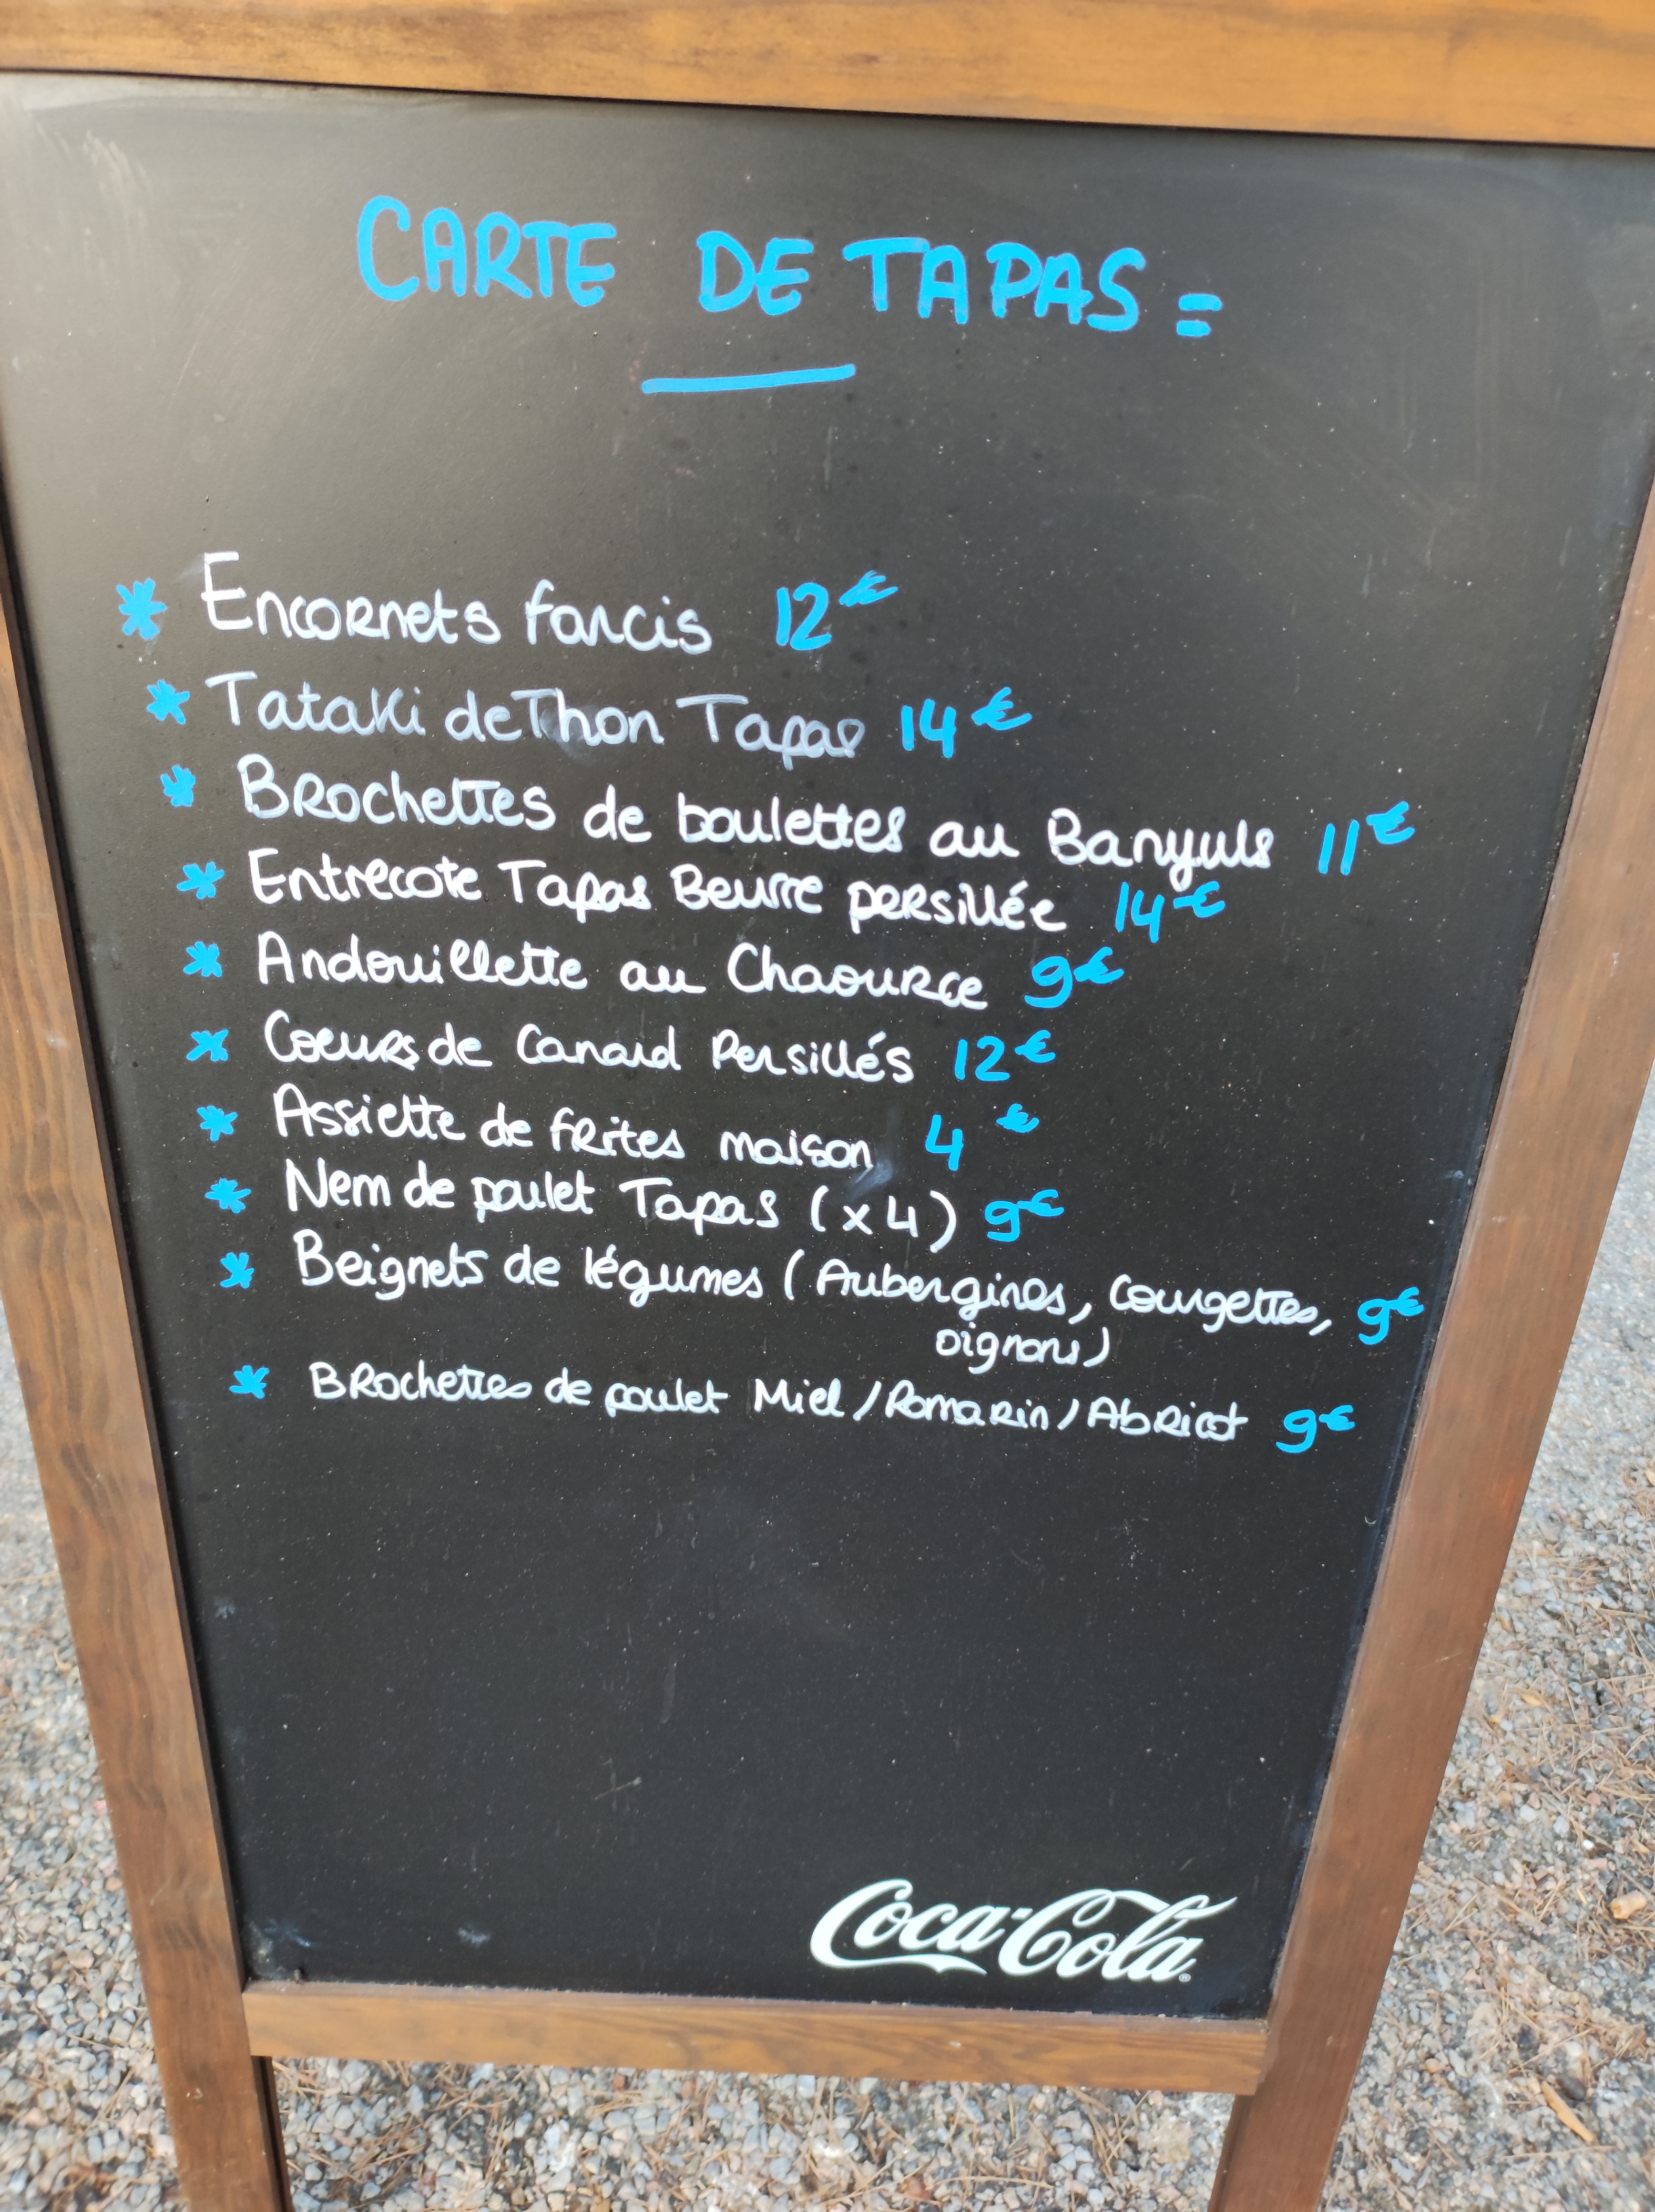 CARTE DE TAPAS =
* Encornets farcis 12€
* Tataki de Thon Tapas 14€
* Brochettes de boulettes au Banyuls 11€
* Entrecote Tapas Beurre persillée 14€
* Andouillette au Chaource 9€
* Coeurs de Canard Persillés 12€
* Assiette de frites maison 4€
* Nem de poulet Tapas (x4) 9€
* Beignets de légumes (Aubergines, Courgettes, 9€
oignons)
* Brochettes de poulet Miel/Romarin/Abricot 9€
Coca-Cola®